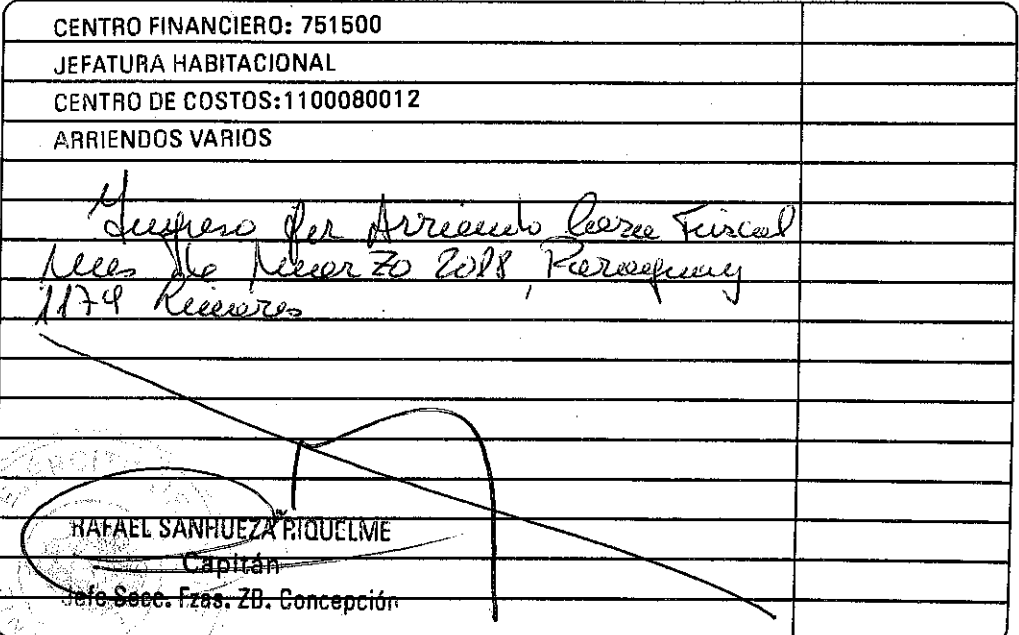 CENTRO FINANCIERO: 751500
JEFATURA HABITACIONAL
CENTRO DE COSTOS:1100080012
ARRIENDOS VARIOS
Ingreso por Arriendo Casa Fiscal
Mes de Marzo 2018, Paraguay
1179
RAFAEL SANHUEZA RIQUELME
Capitán
Jefe Secc. Fzas. ZB. Concepción